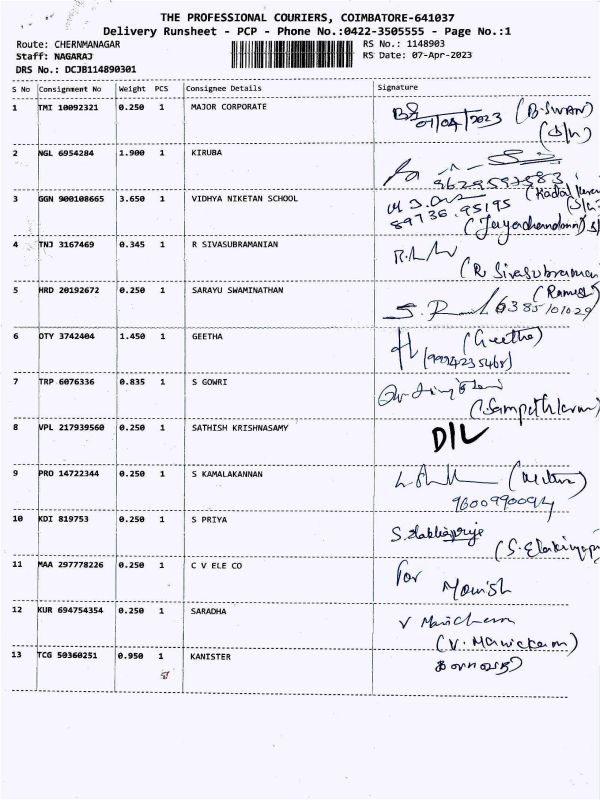 THE PROFESSIONAL COURIERS, COIMBATORE-641037
Delivery Runsheet - PCP - Phone No.:0422-3505555 - Page No.:1
Route: CHERNMANAGAR RS No.: 1148903
Staff: NAGARAJ RS Date: 07-Apr-2023
DRS No.: DCJB114890301
S No Consignment No Weight PCS Consignee Details Signature
1 TMI 10092321 0.250 1 MAJOR CORPORATE
07/04/2023 (B.SWAN)
(S/n)
2 NGL 6954284 1.900 1 KIRUBA
9629597583
3 GGN 900108665 3.650 1 VIDHYA NIKETAN SCHOOL
89736.95195
(Jayachandran)
4 TNJ 3167469 0.345 1 R SIVASUBRAMANIAN
(R. Sivasubraman
5 HRD 20192672 0.250 1 SARAYU SWAMINATHAN (Ramesh)
6385101029
6 OTY 3742404 1.450 1 GEETHA (Geetha)
(9994235468)
7 TRP 6076336 0.835 1 S GOWRI
(Sampathkumar)
8 VPL 217939560 0.250 1 SATHISH KRISHNASAMY D/L
9 PRO 14722344 0.250 1 S KAMALAKANNAN
9600990094
10 KDI 819753 0.250 1 S PRIYA
(S. Elakiyapr
11 MAA 297778226 0.250 1 C V ELE CO For
Mouish
12 KUR 694754354 0.250 1 SARADHA V Manickam
(V. Manickam)
13 TCG 50360251 0.950 1 KANISTER